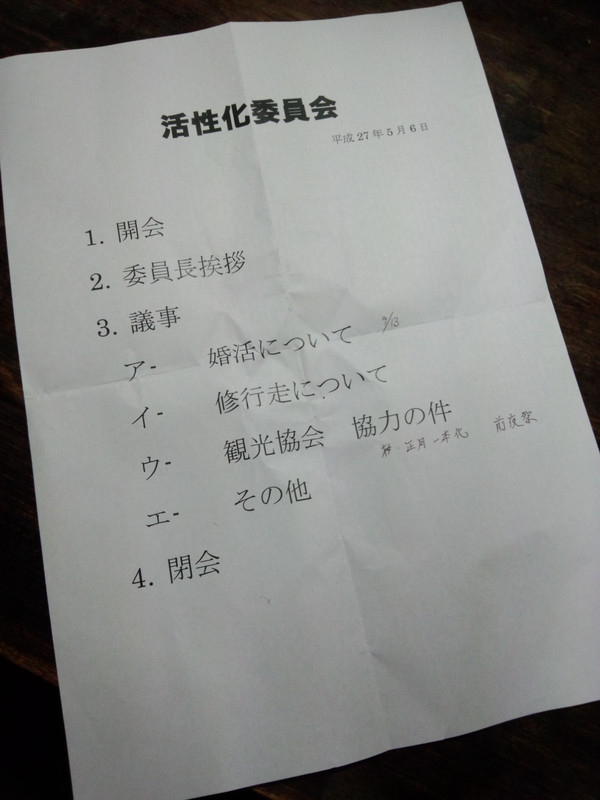 活性化委員会
平成27年5月6日
1. 開会
2. 委員長挨拶
3. 議事
ア- 婚活について 9/13
イ- 修行走について
ウ- 観光協会 協力の件
正月一本化 前夜祭
エ- その他
4. 閉会